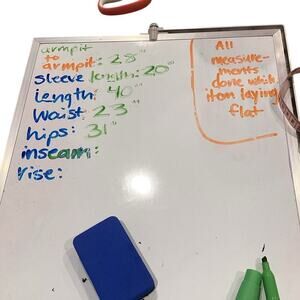 armpit
to
armpit: 28"
sleeve length: 20"
length: 40"
waist: 23"
hips: 31"
inseam:
rise:
All
measure-
ments
done while
item laying
flat